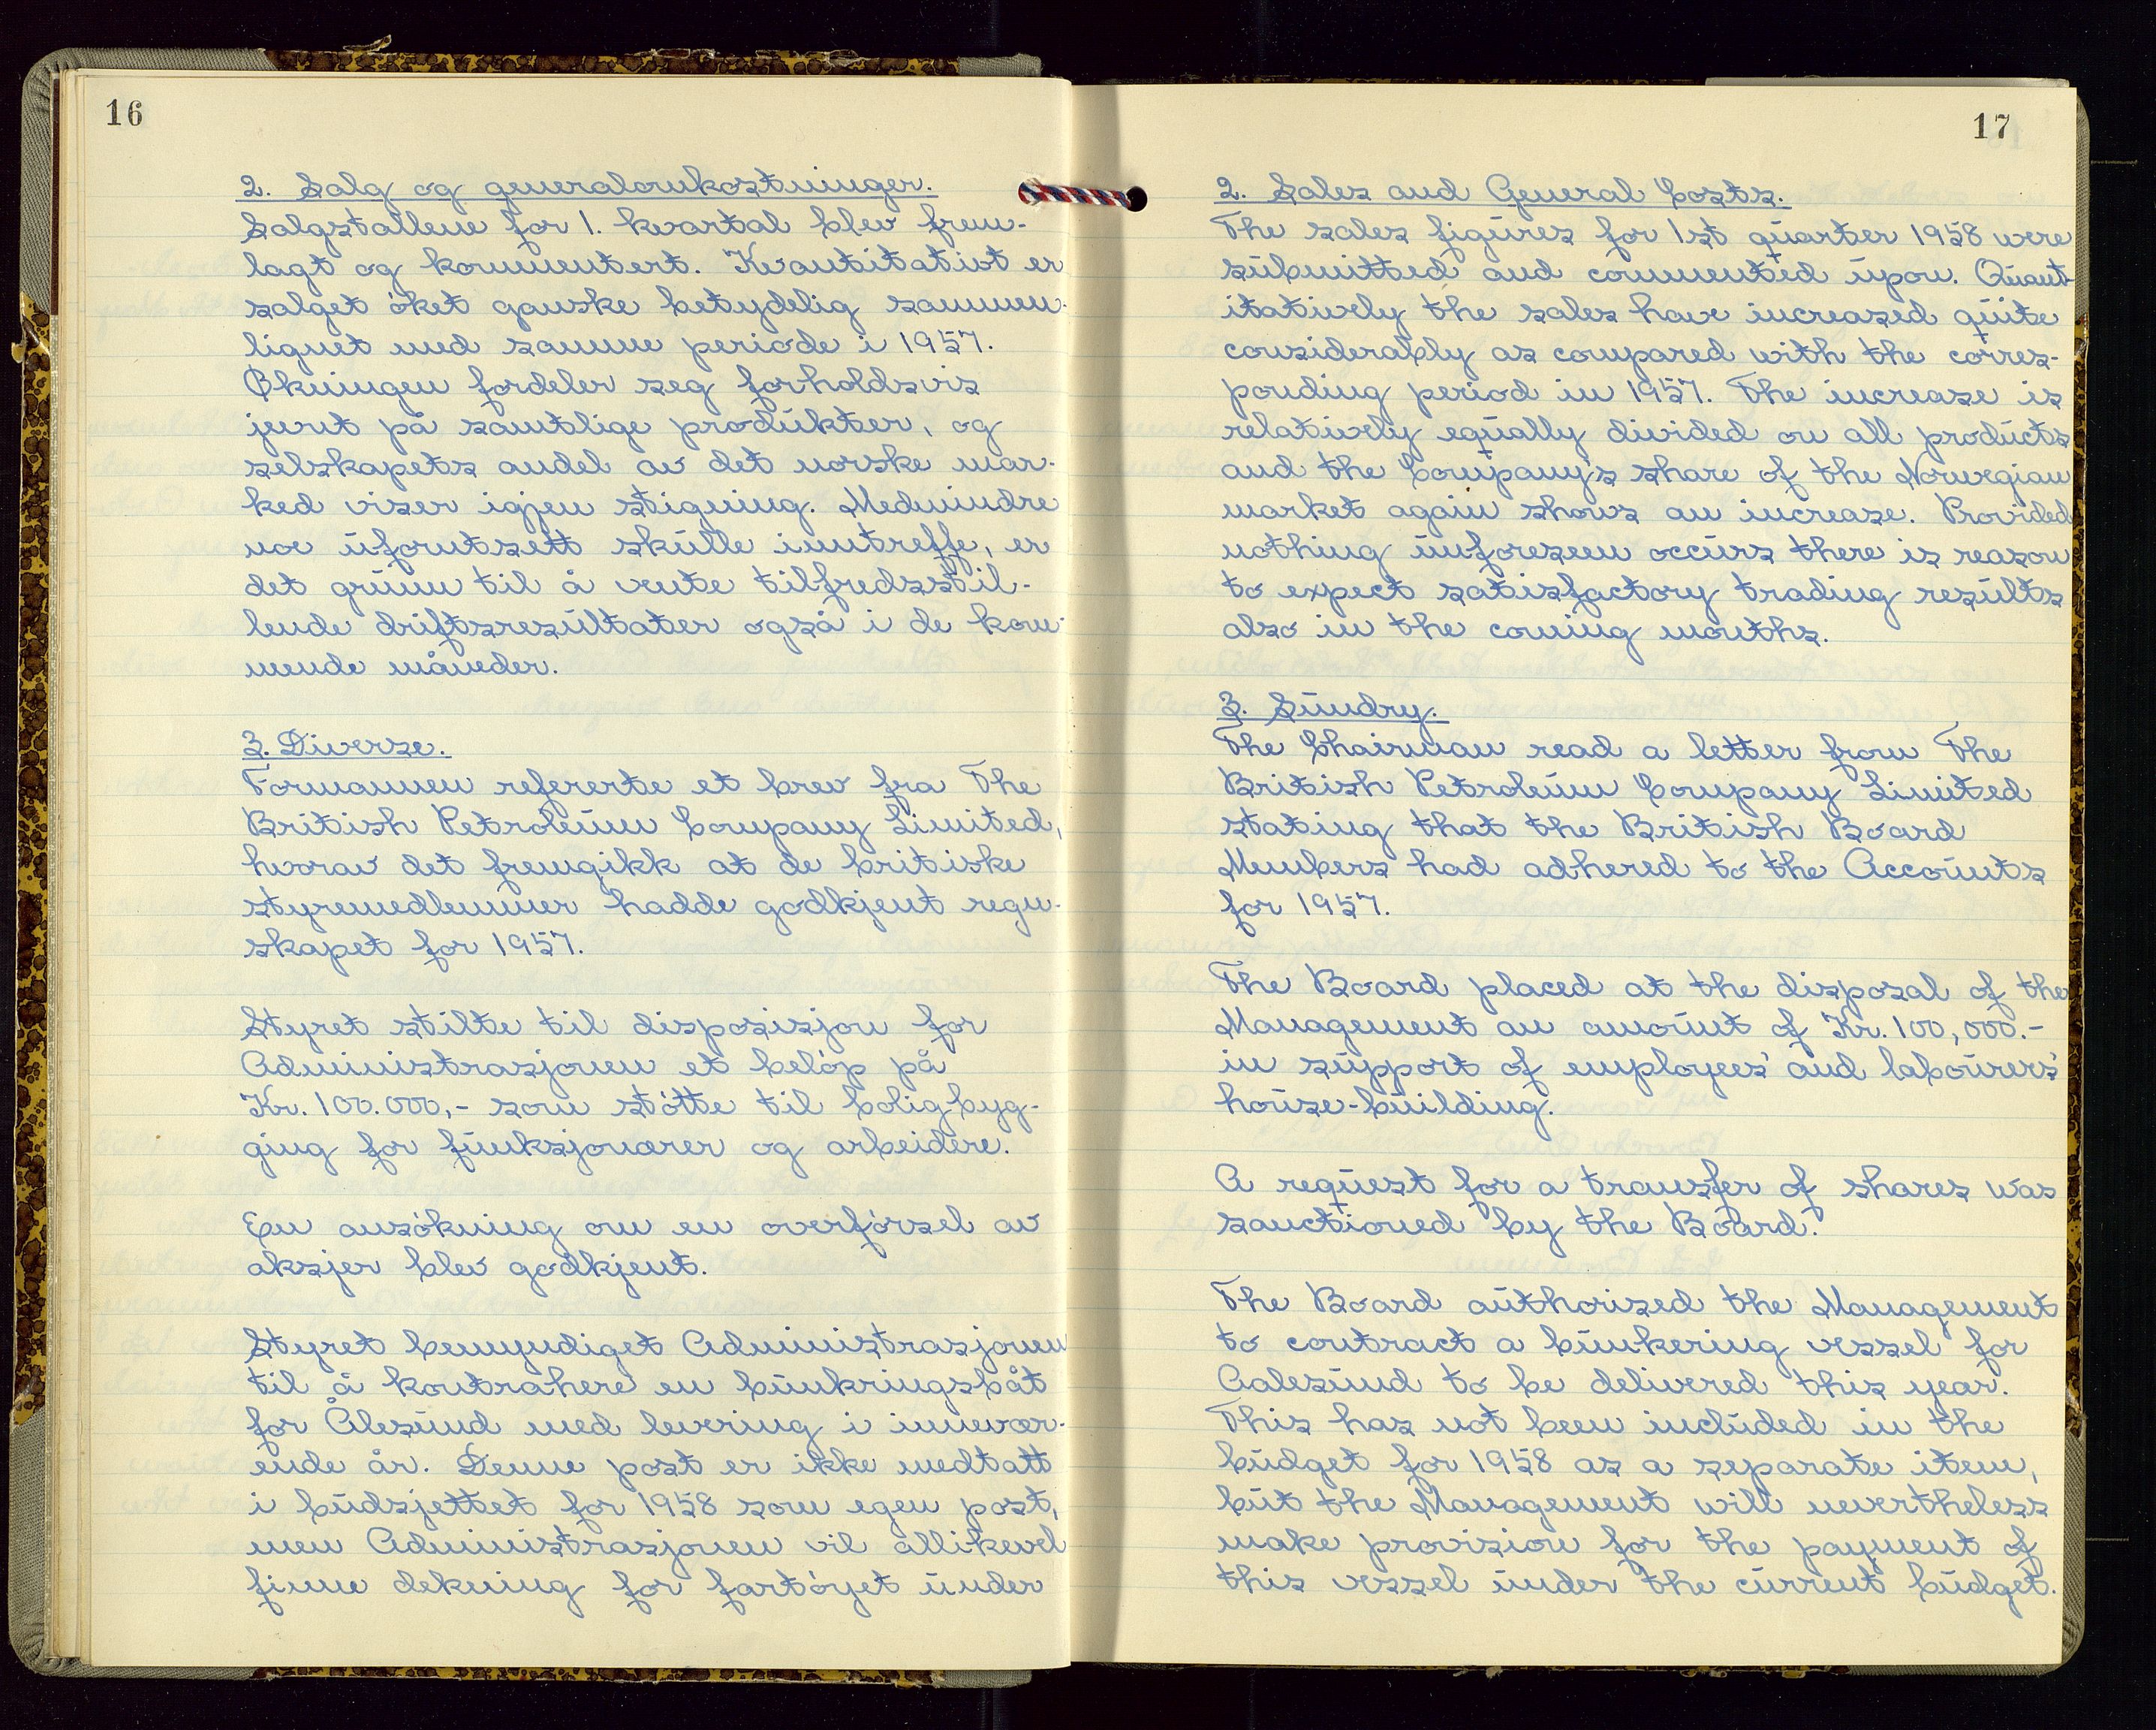 16
2. Salg og generalomkostninger.
Salgstallene for 1. kvartal blev frem-
lagt og kommentert. Kvantitativt er
salget öket ganske betydelig sammen-
lignet med samme periode i 1957.
Økningen fordeler seg forholdsvis
jevnt på samtlige produkter, og
selskapets andel av det norske mar-
ked viser igjen stigning. Medmindre
noe uforutsett skulle inntreffe, er
det grunn til å vente tilfredsstil-
lende driftsresultater også i de kom-
mende måneder.
3. Diverse.
Formannen refererte et brev fra The
British Petroleum Company Limited,
hvorav det fremgikk at de britiske
styremedlemmer hadde godkjent regn-
skapet for 1957.
Styret stilte til disposisjon for
Administrasjonen et belöp på
Kr. 100.000,- som stötte til boligbyg-
ging for funksjonærer og arbeidere.
En ansökning om en overförsel av
aksjer blev godkjent.
Styret bemyndiget Administrasjonen
til å kontrahere en bunkringsbåt
for Ålesund med levering i innevær-
ende år. Denne post er ikke medtatt
i budsjettet for 1958 som egen post,
men Administrasjonen vil allikevel
finne dekning for fartöyet under
17
2. Sales and General Costs.
The sales figures for 1st quarter 1958 were
submitted and commented upon. Quant-
itatively the sales have increased quite
considerably as compared with the corres-
ponding period in 1957. The increase is
relatively equally divided on all products
and the Company's share of the Norwegian
market again shows an increase. Provided
nothing unforeseen occurs there is reason
to expect satisfactory trading results
also in the coming months.
3. Sundry.
The Chairman read a letter from The
British Petroleum Company Limited
stating that the British Board
Members had adhered to the Accounts
for 1957.
The Board placed at the disposal of the
Management an amount of Kr. 100,000.-
in support of employees' and labourers'
house-building.
A request for a transfer of shares was
sanctioned by the Board.
The Board authorized the Management
to contract a bunkering vessel for
Aalesund to be delivered this year.
This has not been included in the
budget for 1958 as a separate item,
but the Management will nevertheless
make provision for the payment of
this vessel under the current budget.